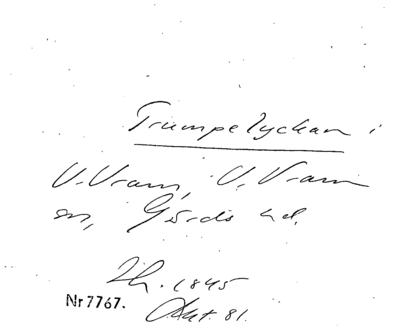 Trumpelyckan i
V. Vram, V. Vram
sn, Gärds hd.
Zh. 1845
Nr 7767. Akt. 81.